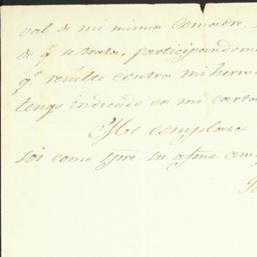 val de mi misma Comadre,
de q.e se trata, participandome
q.e resulte contra mi herm
tengo indicado en mi carta
Me complazco
soi como spre su afmo am